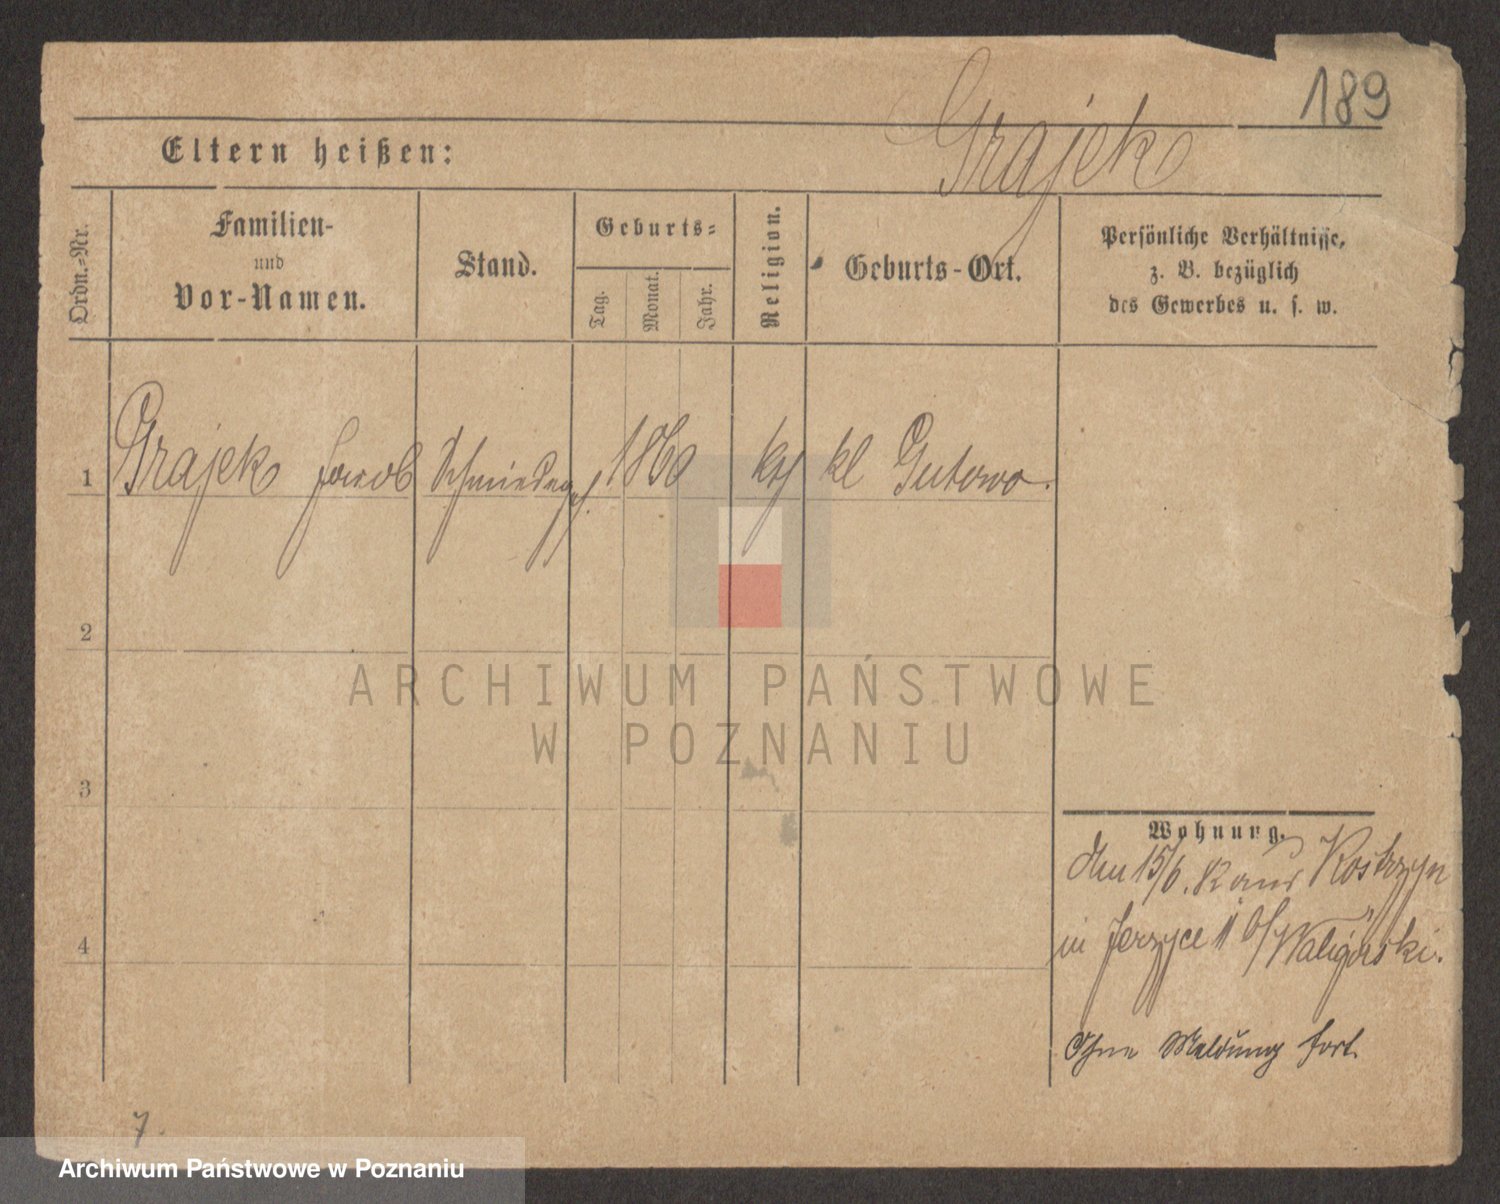 189
Grajek
Eltern heißen:
Ordn.-Nr.
Familien-
und
Vor-Namen.
Stand.
Geburts-
Tag.
Monat.
Jahr.
Religion.
Geburts-Ort.
Persönliche Verhältnisse,
z. B. bezüglich
des Gewerbes u. s. w.
1 Grajek Jacob Schmiedeges. 1860 kth kl Gutowo.
2
3
4
ARCHIWUM PAŃSTWOWE
W POZNANIU
Wohnung.
den 15/6. 82 aus Kostrzyn
in Jerzyce 11 b/ Waligórski.
Ohne Meldung fort.
7.
Archiwum Państwowe w Poznaniu